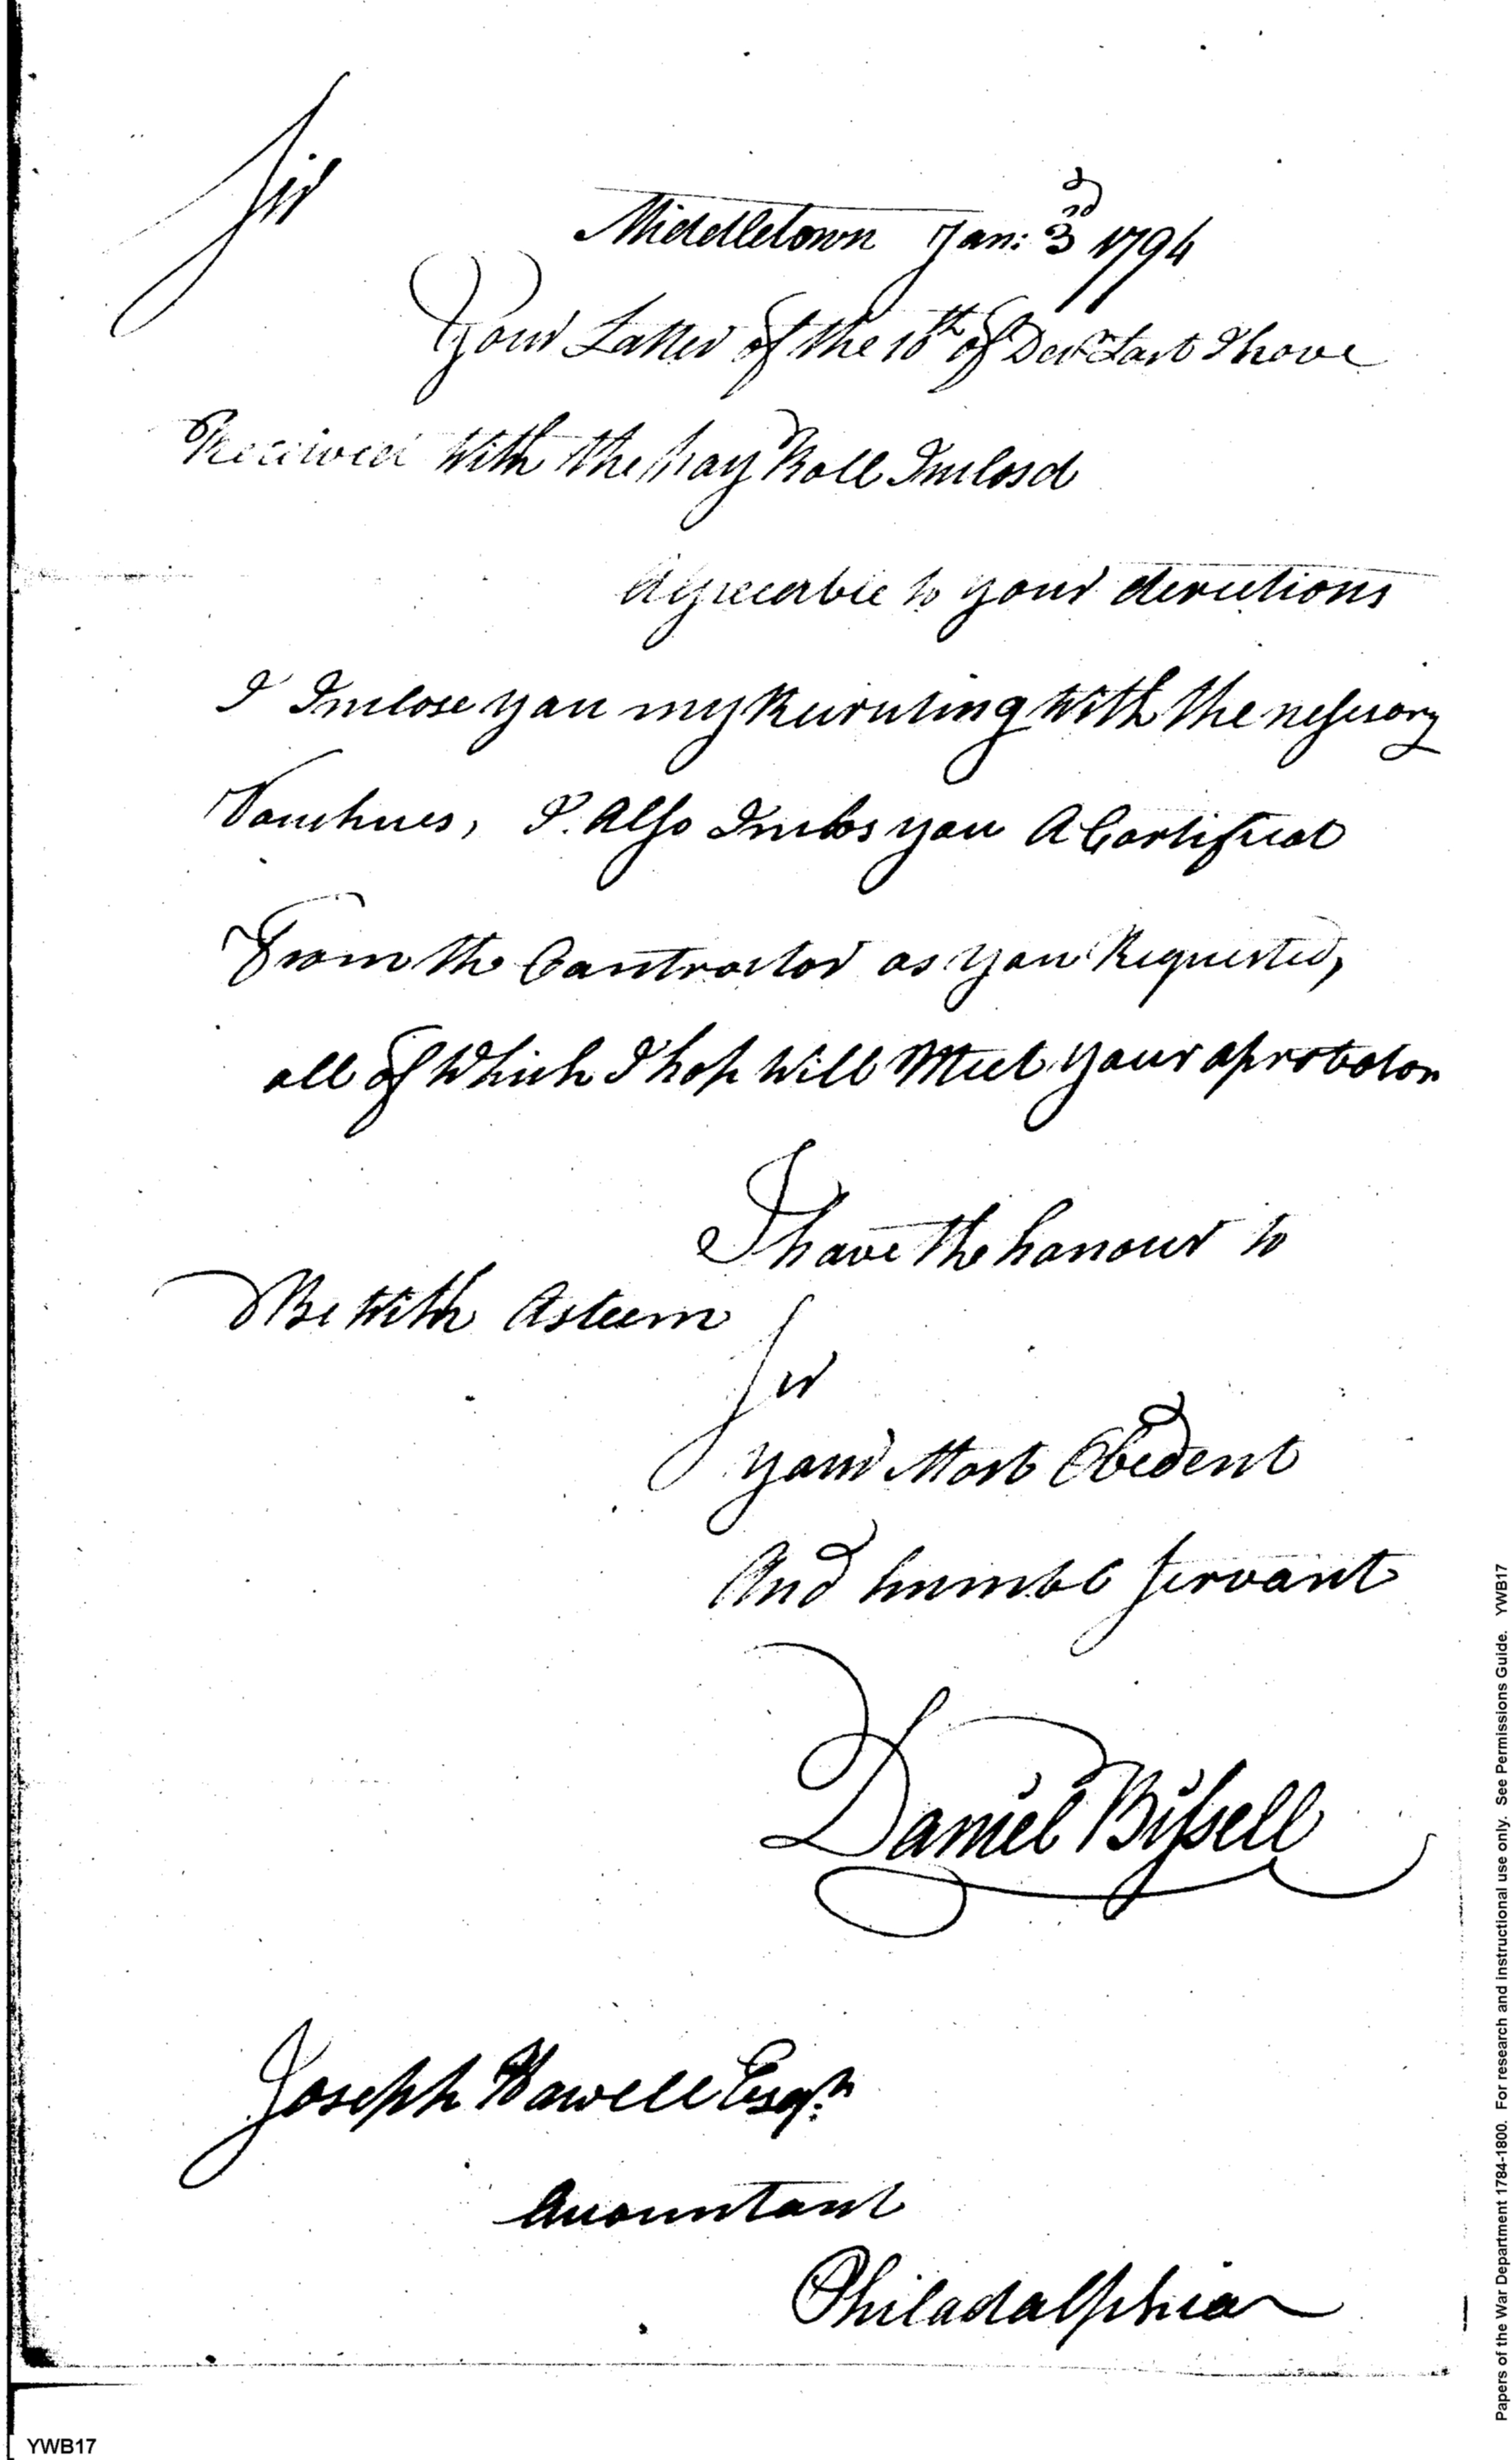 Sir
Middletown Jan: 3rd 1794
Your Latter of the 10th of Decr Last I have
Received With the pay Roll Inclosd
Agreeable to your derections
I Inclose you my Recruting With the nessesary
Vouchures, I. Also Inclos you A Cartificat
From the Contractor as you Requested,
all of Which I hop Will Meet your aprobaton
I have the honour to
Be With Asteem
Sir
your Most Obedent
And humble Servant
Daniel Bissell
Joseph Howell Esqr.
Accountant
Philadalphia
Papers of the War Department 1784-1800. For research and instructional use only. See Permissions Guide. YWB17
YWB17